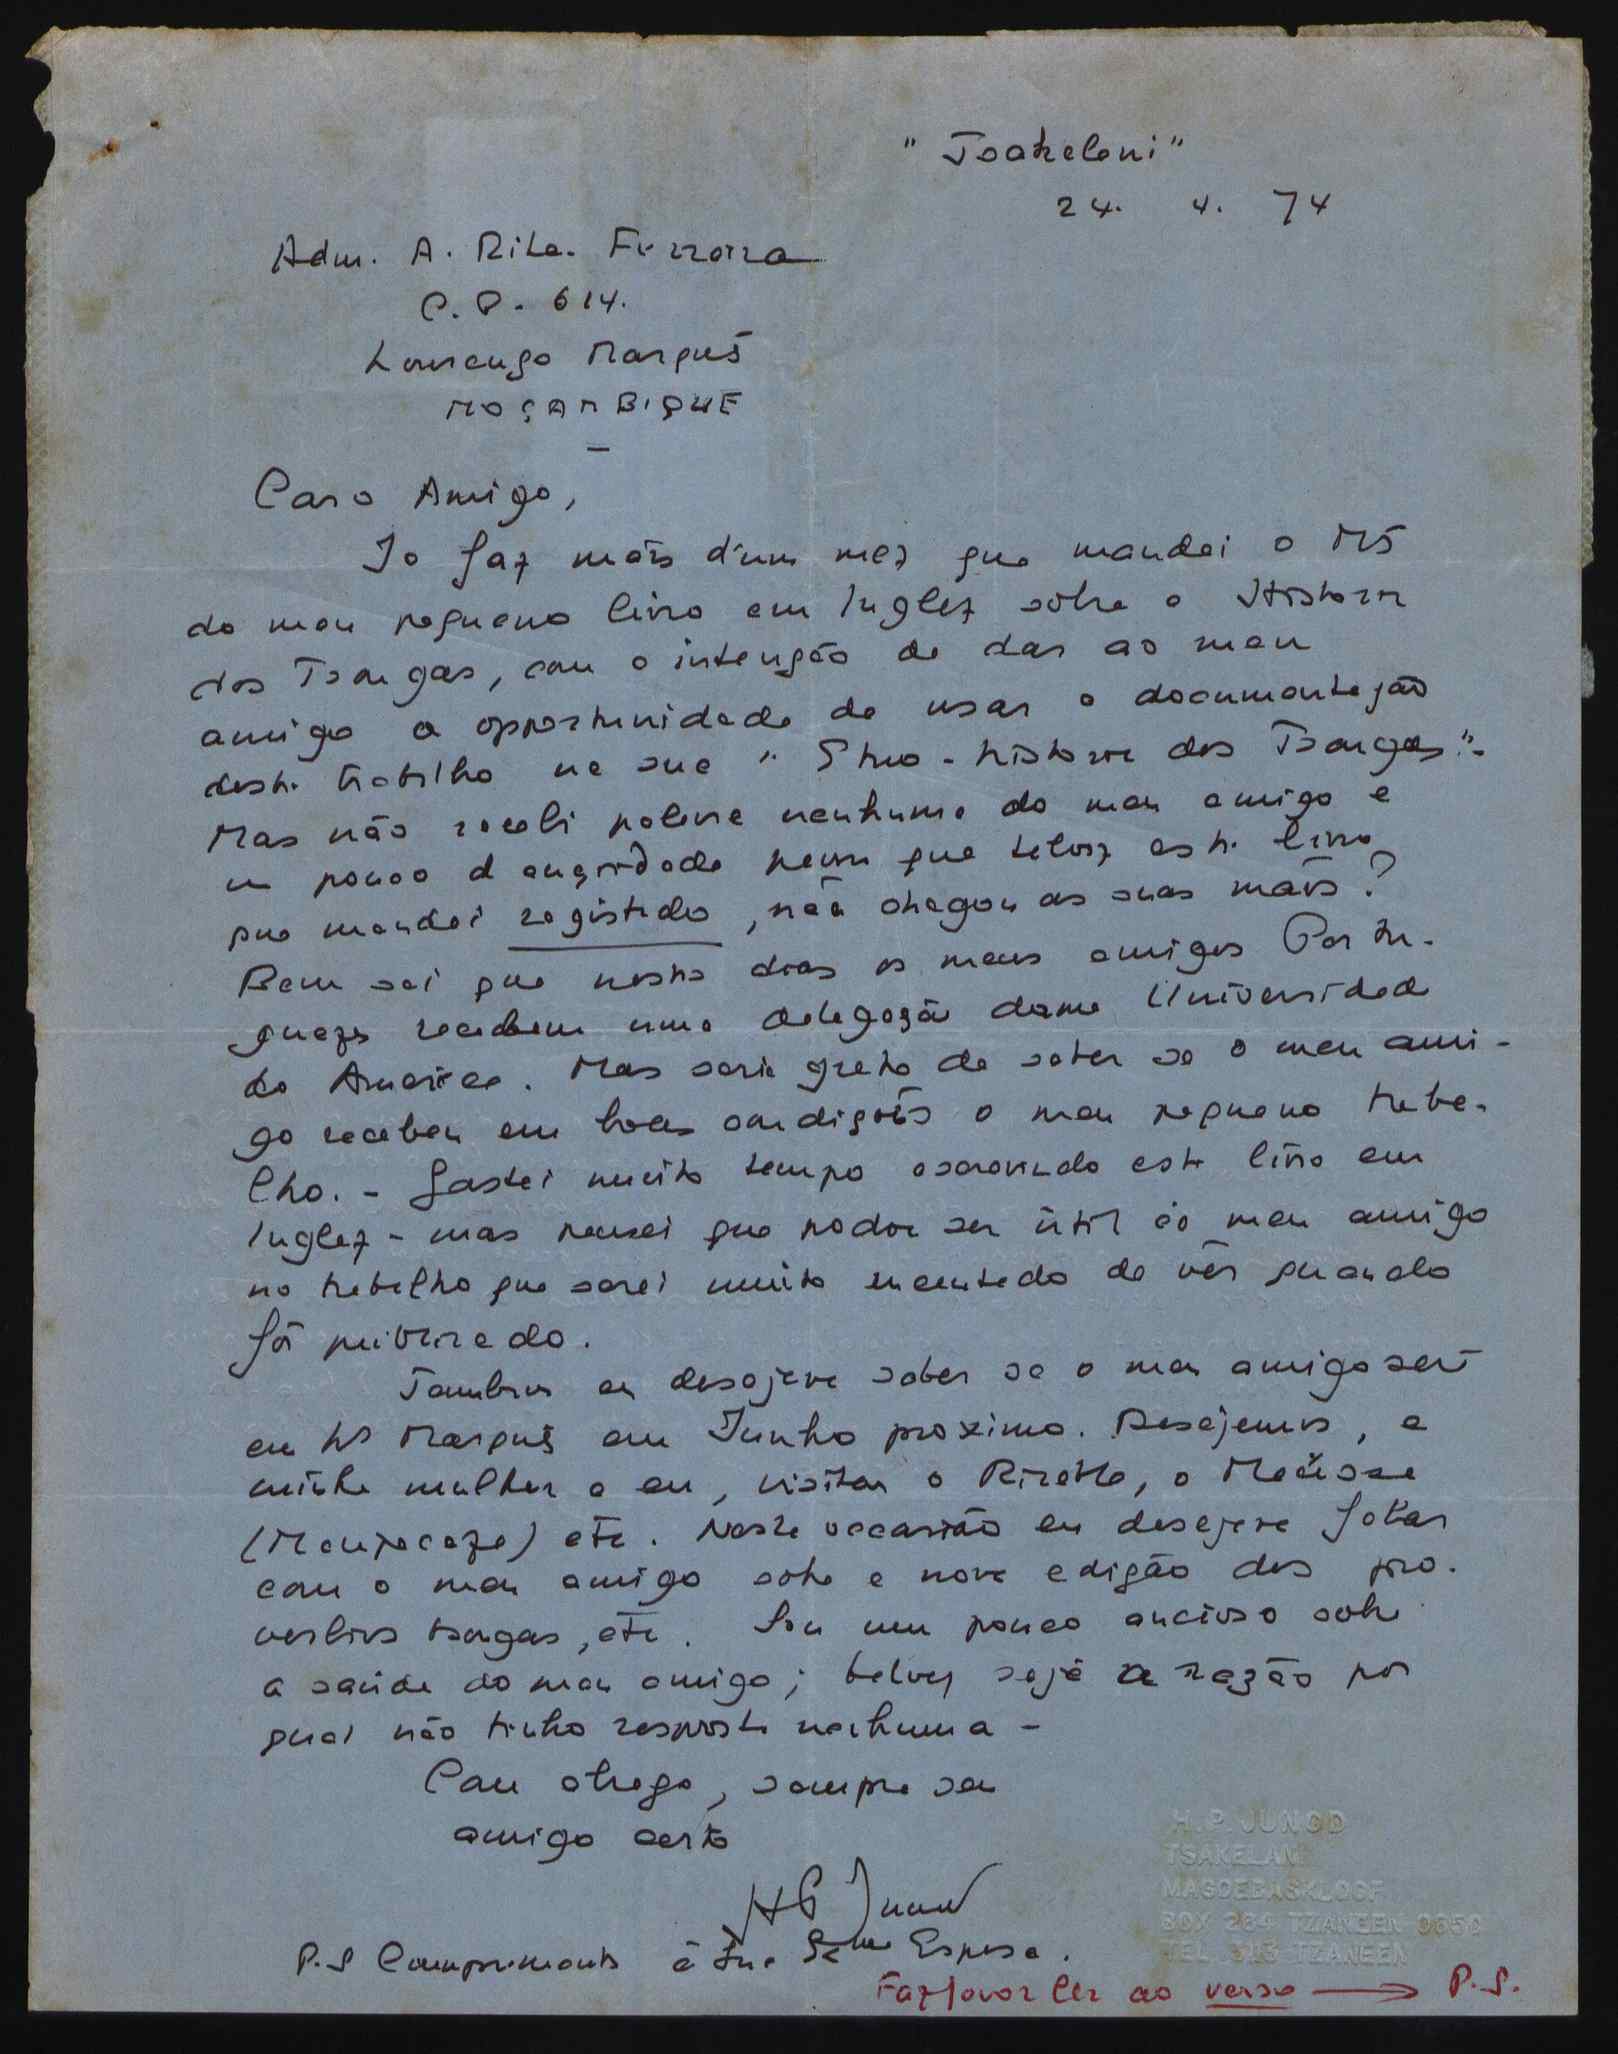 "Tsakelani"
24. 4. 74
Adm. A. Rita. Ferreira
C.P. 614.
Lourenço Marques
MOÇAMBIQUE
Caro Amigo,
Ja faz mais d'um mez que mandei o MS
do meu pequeno livro em Inglez sôbre a Historia
dos Tsongas, com a intenção de dar ao meu
amigo a opportunidade de usar a documentação
deste trabalho na sua "Etno-historia dos Tsongas".
Mas não recebi palavra nenhuma do meu amigo e
um pouco d'anxiedade que talvez este livro
que mandei registado, não chegou as suas mãos?
Bem sei que nestes dias os meus amigos Portu-
guezes recebem uma delegação duma Universidade
da America. Mas seria grato de saber se o meu ami-
go recebeu em boas condições o meu pequeno traba-
lho. - Gastei muito tempo escrevendo este livro em
Inglez - mas pensei que podia ser útil ao meu amigo
no trabalho que serei muito encantado de vêr quando
fôr publicado.
Tambem eu desejava saber se o meu amigo será
em Lço Marques em Junho proximo. Desejamos, a
minha mulher e eu, visitar o Rikatla, o Maússe
(Manjacaze) etc. Nesta occasião eu desejava falar
com o meu amigo sobre a nova edição dos pro-
verbios tsongas, etc. Sou um pouco ancioso sobre
a saúde do meu amigo; talvez seja a razão por
qual não tenho resposta nenhuma -
Com abraço, sempre seu
amigo certo
HP Junod
P.S Comprimentos à sua Exma Esposa.
Faz favor ler ao verso → P.S.
H.P. JUNOD
TSAKELANI
MAGOEBASKLOOF
BOX 284 TZANEEN 0850
TEL. 313 TZANEEN